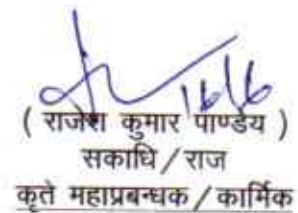 16/6
( राजेश कुमार पाण्डेय )
सकाधि / राज
कृते महाप्रबन्धक / कार्मिक